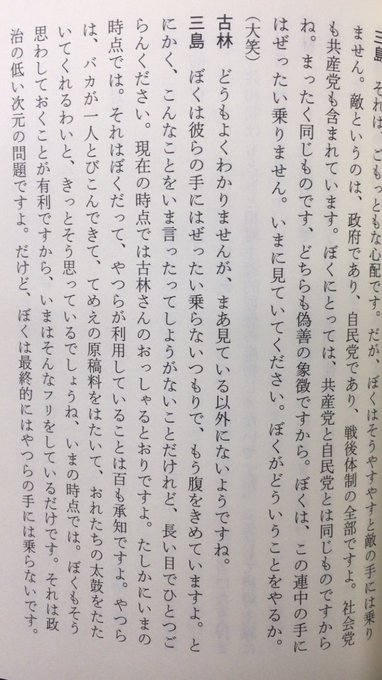 三島　それは、ごもっともな心配です。だが、ぼくはそうやすやすと敵の手には乗り
ません。敵というのは、政府であり、自民党であり、戦後体制の全部ですよ。社会党
も共産党も含まれています。ぼくにとっては、共産党と自民党とは同じものですから
ね。まったく同じものです　どちらも偽善の象徴ですから。ぼくは、この連中の手に
はぜったい乗りません。いまに見ていてください。ぼくがどういうことをやるか。
（大笑）
古林　どうもよくわかりませんが、まあ見ている以外にないようですね。
三島　ぼくは彼らの手にはぜったい乗らないつもりで、もう腹をきめていますよ。と
にかく、こんなことをいま言ったってしようがないことだけれど、長い目でひとつご
らんください。現在の時点では古林さんのおっしゃるとおりですよ。たしかにいまの
時点では。それはぼくだって、やつらが利用していることは百も承知ですよ。やつら
は、バカが一人とびこんできて、てめえの原稿料をはたいて、おれたちの太鼓をたた
いてくれるわいと、きっとそう思っているでしょうね、いまの時点では。ぼくもそう
思わしておくことが有利ですから、いまはそんなフリをしているだけです。それは政
治の低い次元の問題ですよ。だけど、ぼくは最終的にはやつらの手には乗らないです。